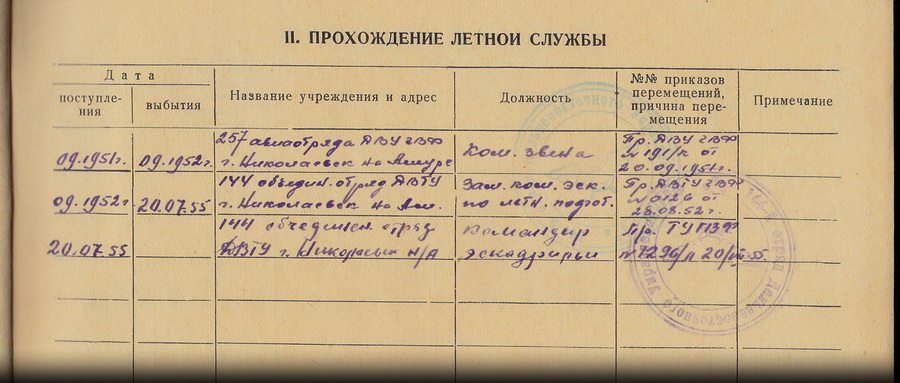 II. ПРОХОЖДЕНИЕ ЛЕТНОИ СЛУЖБЫ
Дата
поступле-
ния
выбытия
Название учреждения и адрес
Должность
№№ приказов
перемещений,
причина пере-
мещения
Примечание
09.1951г.
09.1952г.
257 авиаотряда ДВУ ГВФ
г. Николаевск на Амуре
Ком. звена
Пр. ДВУ ГВФ
№ 191/к от
20.09.1951г.
09.1952г
20.07.55
144 объедин. отряд ДВТУ
г. Николаевск на Ам.
Зам. ком. эск.
по летн. подгот.
Пр. ДВТУ ГВФ
№ 0126 от
28.08.52г.
20.07.55
144 объединен отряд
ДВТУ г. Николаевск н/А
Командир
эскадрильи
ГУГВФ
№ 7296/л 20/VII-55
144-й отряд Дальневосточного